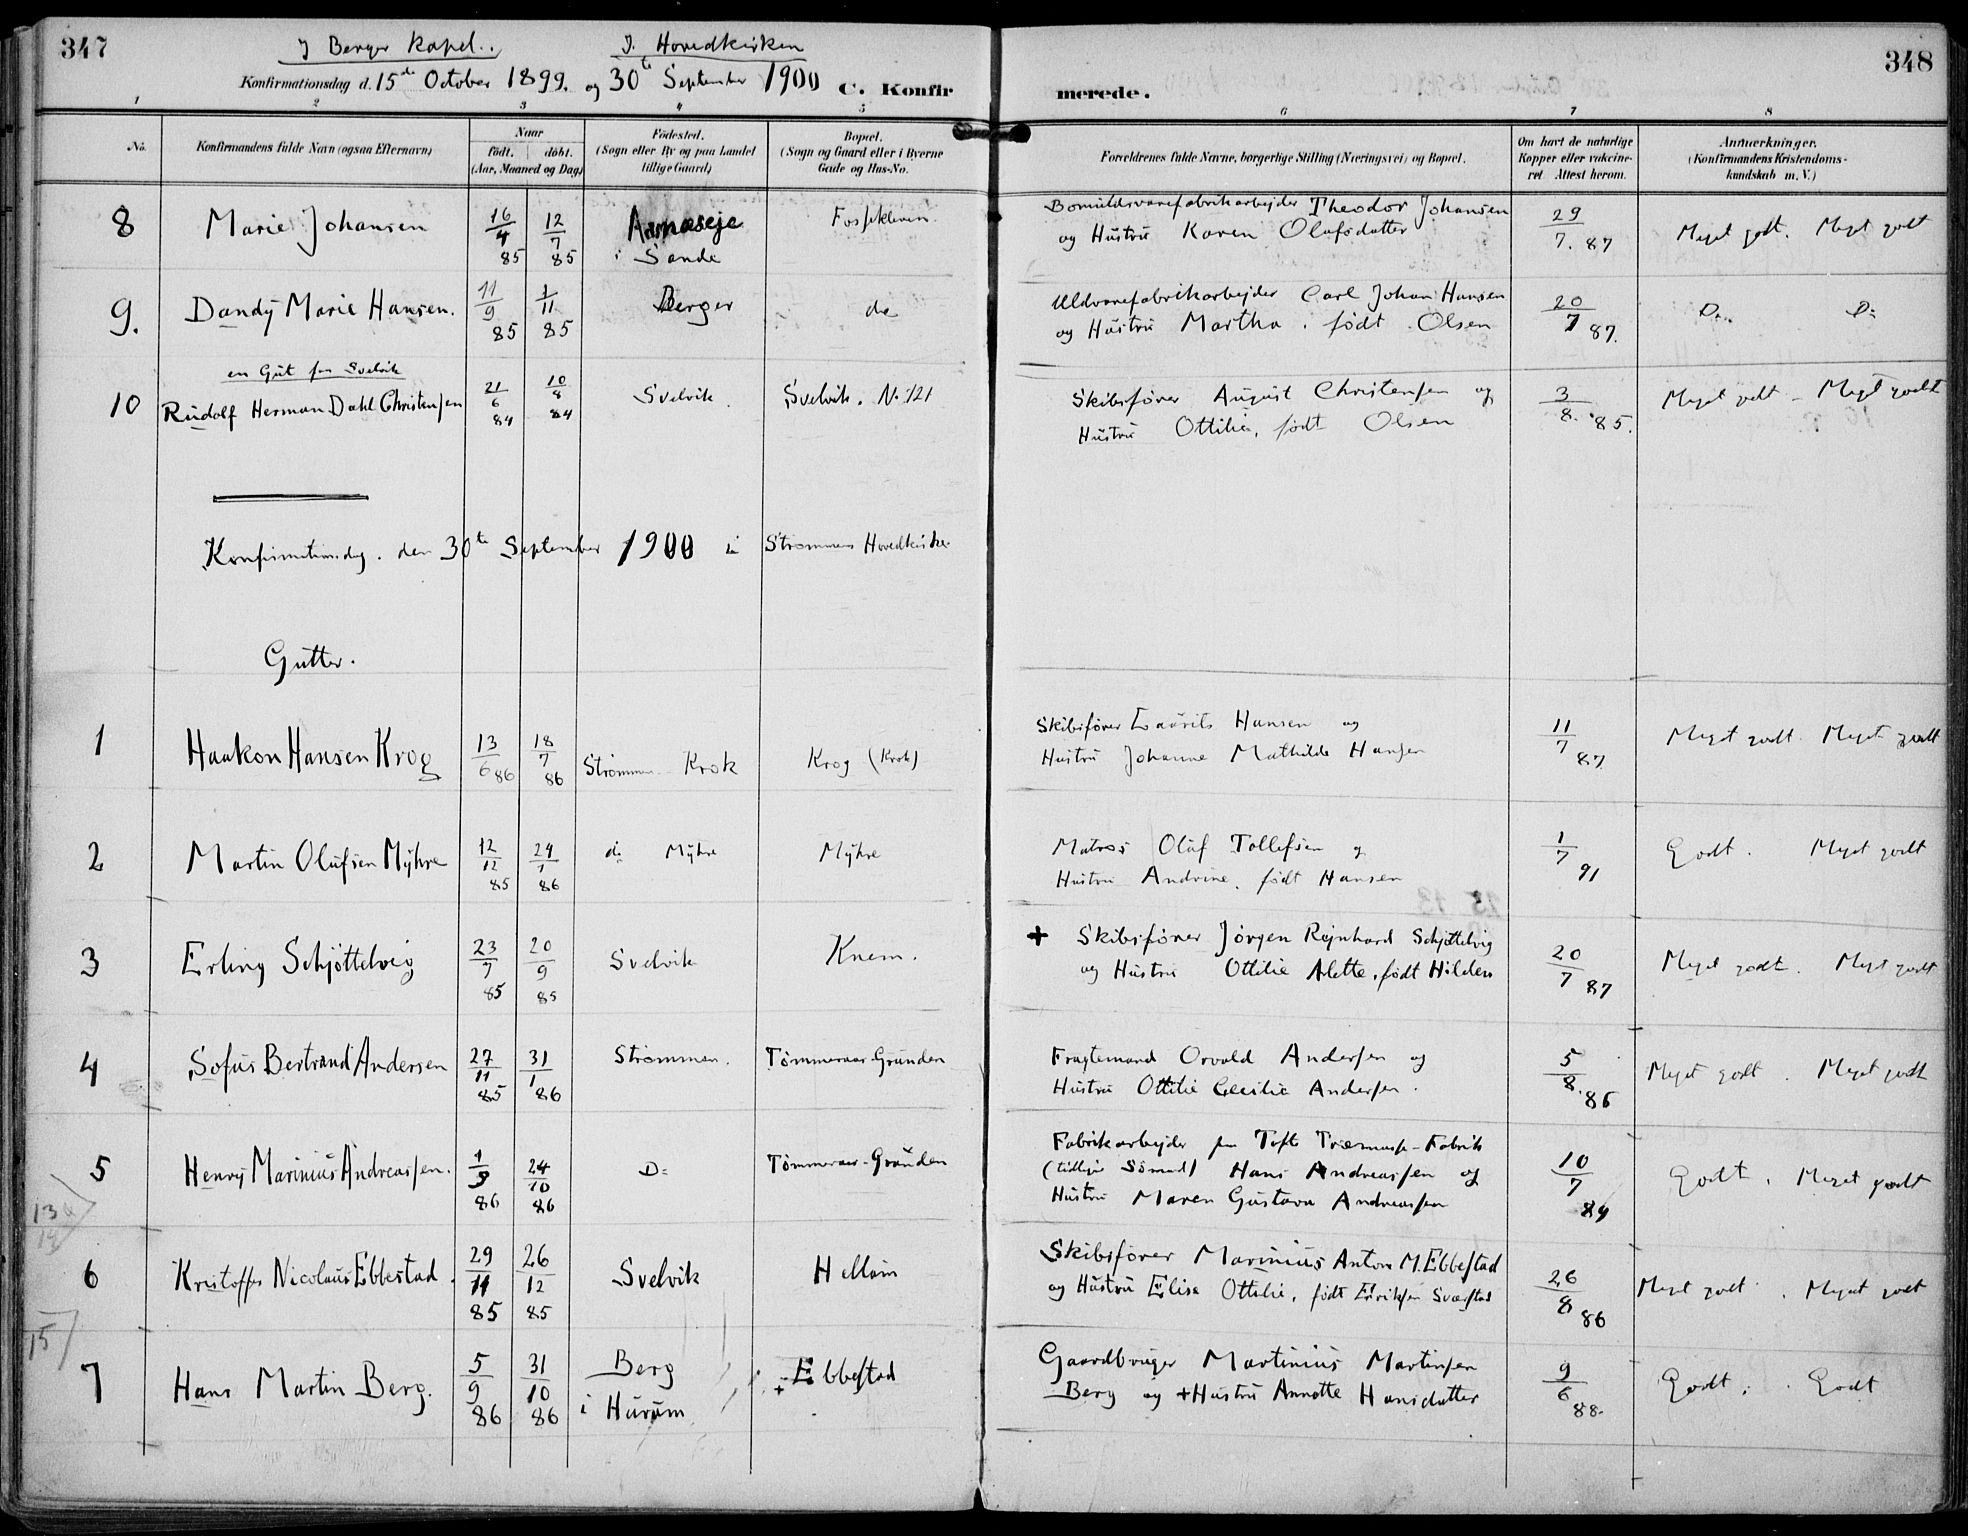 347
J Berger Kapel.
J. Hovedkirken
348
Konfirmationsdag d. 15de October 1899. og 30te September 1900 C. Konfir
merede.
1 2 3 4 5 6 7 8
No.
Konfirmandens fulde Navn (ogsaa Efternavn)
Naar
født. døbt.
(Aar, Maaned og Dag)
Fødested.
(Sogn eller By og paa Landet
tillige Gaard)
Bopæl.
(Sogn og Gaard eller i Byerne
Gade og Hus-No.
Forældrenes fulde Navne, borgerlige Stilling (Næringsvei) og Bopæl.
Om havt de naturlige
Kopper eller vakcine-
ret Attest herom.
Anmærkninger.
(Konfirmandens Kristendoms-
kundskab m. V.)
8 Marie Johansen 16/4 85 12/7 85 Arnæseje
i Sande
Fossekleven
Bomuldsvarefabrikarbejder Theodor Johansen
og Hustru Karen Olufsdatter
29/7. 87 Meget godt. Meget godt
9. Dandy Marie Hansen. 11/9 85 1/11 85 Berger do
Uldvarefabrikarbejder Carl Johan Hansen
og Hustru Martha, født Olsen
20/7 87. Do. Do
en Gut fra Svelvik
10 Rudolf Herman Dahl Christensen 21/6 84 10/8 84 Svelvik Svelvik. No. 121
Skibsfører August Christensen og
Hustru Ottilie, født Olsen
3/8. 85. Meget godt - Meget godt
Konfirmationsdag. den 30te September 1900 i Strømmens Hovedkirke
Gutter.
1 Haakon Hansen Krog 13/6 86 18/7 86 Strømmen Krok Krog (Krok)
Skibsfører Laurits Hansen og
Hustru Johanne Mathilde Hansen
11/7 87 Meget godt. Meget godt
2 Martin Olufsen Myhre 12/12 85 24/1 86 do Myhre Myhre
Matros Oluf Tollefsen og
Hustru Andrine, født Hansen
1/7 91 Godt. Meget godt
3 Erling Schjøttelvig 23/7 85 20/9 85 Svelvik Knem.
+ Skibsfører Jørgen Rejnhard Schjøttelvig
og Hustru Ottilie Alette, født Hilden
20/7 87 Meget godt. Meget godt
4 Sofus Bertrand Andersen 27/11 85 31/1 86 Strømmen. Tømmeraas-Grunden
Fragtemand Orvald Andersen og
Hustru Ottilie Cecilie Andersen.
5/8. 86 Meget godt. Meget godt
5 Henry Marinius Andreassen. 1/9 86 24/10 86 Do Tømmeraas-Grunden
Fabrikarbejder paa Tofte Træmasse-Fabrik
(tidligere Sømand) Hans Andreassen og
Hustru Maren Gustava Andreassen
10/7 89 Godt. Meget godt
13
14
6 Kristoffer Nicolaus Ebbestad. 29/11 85 26/12 85 Svelvik Hellum
Skibsfører Marinius Anton M. Ebbestad
og Hustru Elise Ottilie, født Eriksen Sværstad
26/8 86 Meget godt. Meget godt
15
7 Hans Martin Berg. 5/9 86 31/10 86 Berg
i Hurum
+ Ebbestad
Gaardbruger Martinius Martinsen
Berg og + Hustru Annette Hansdatter
9/6 88. Godt. Godt